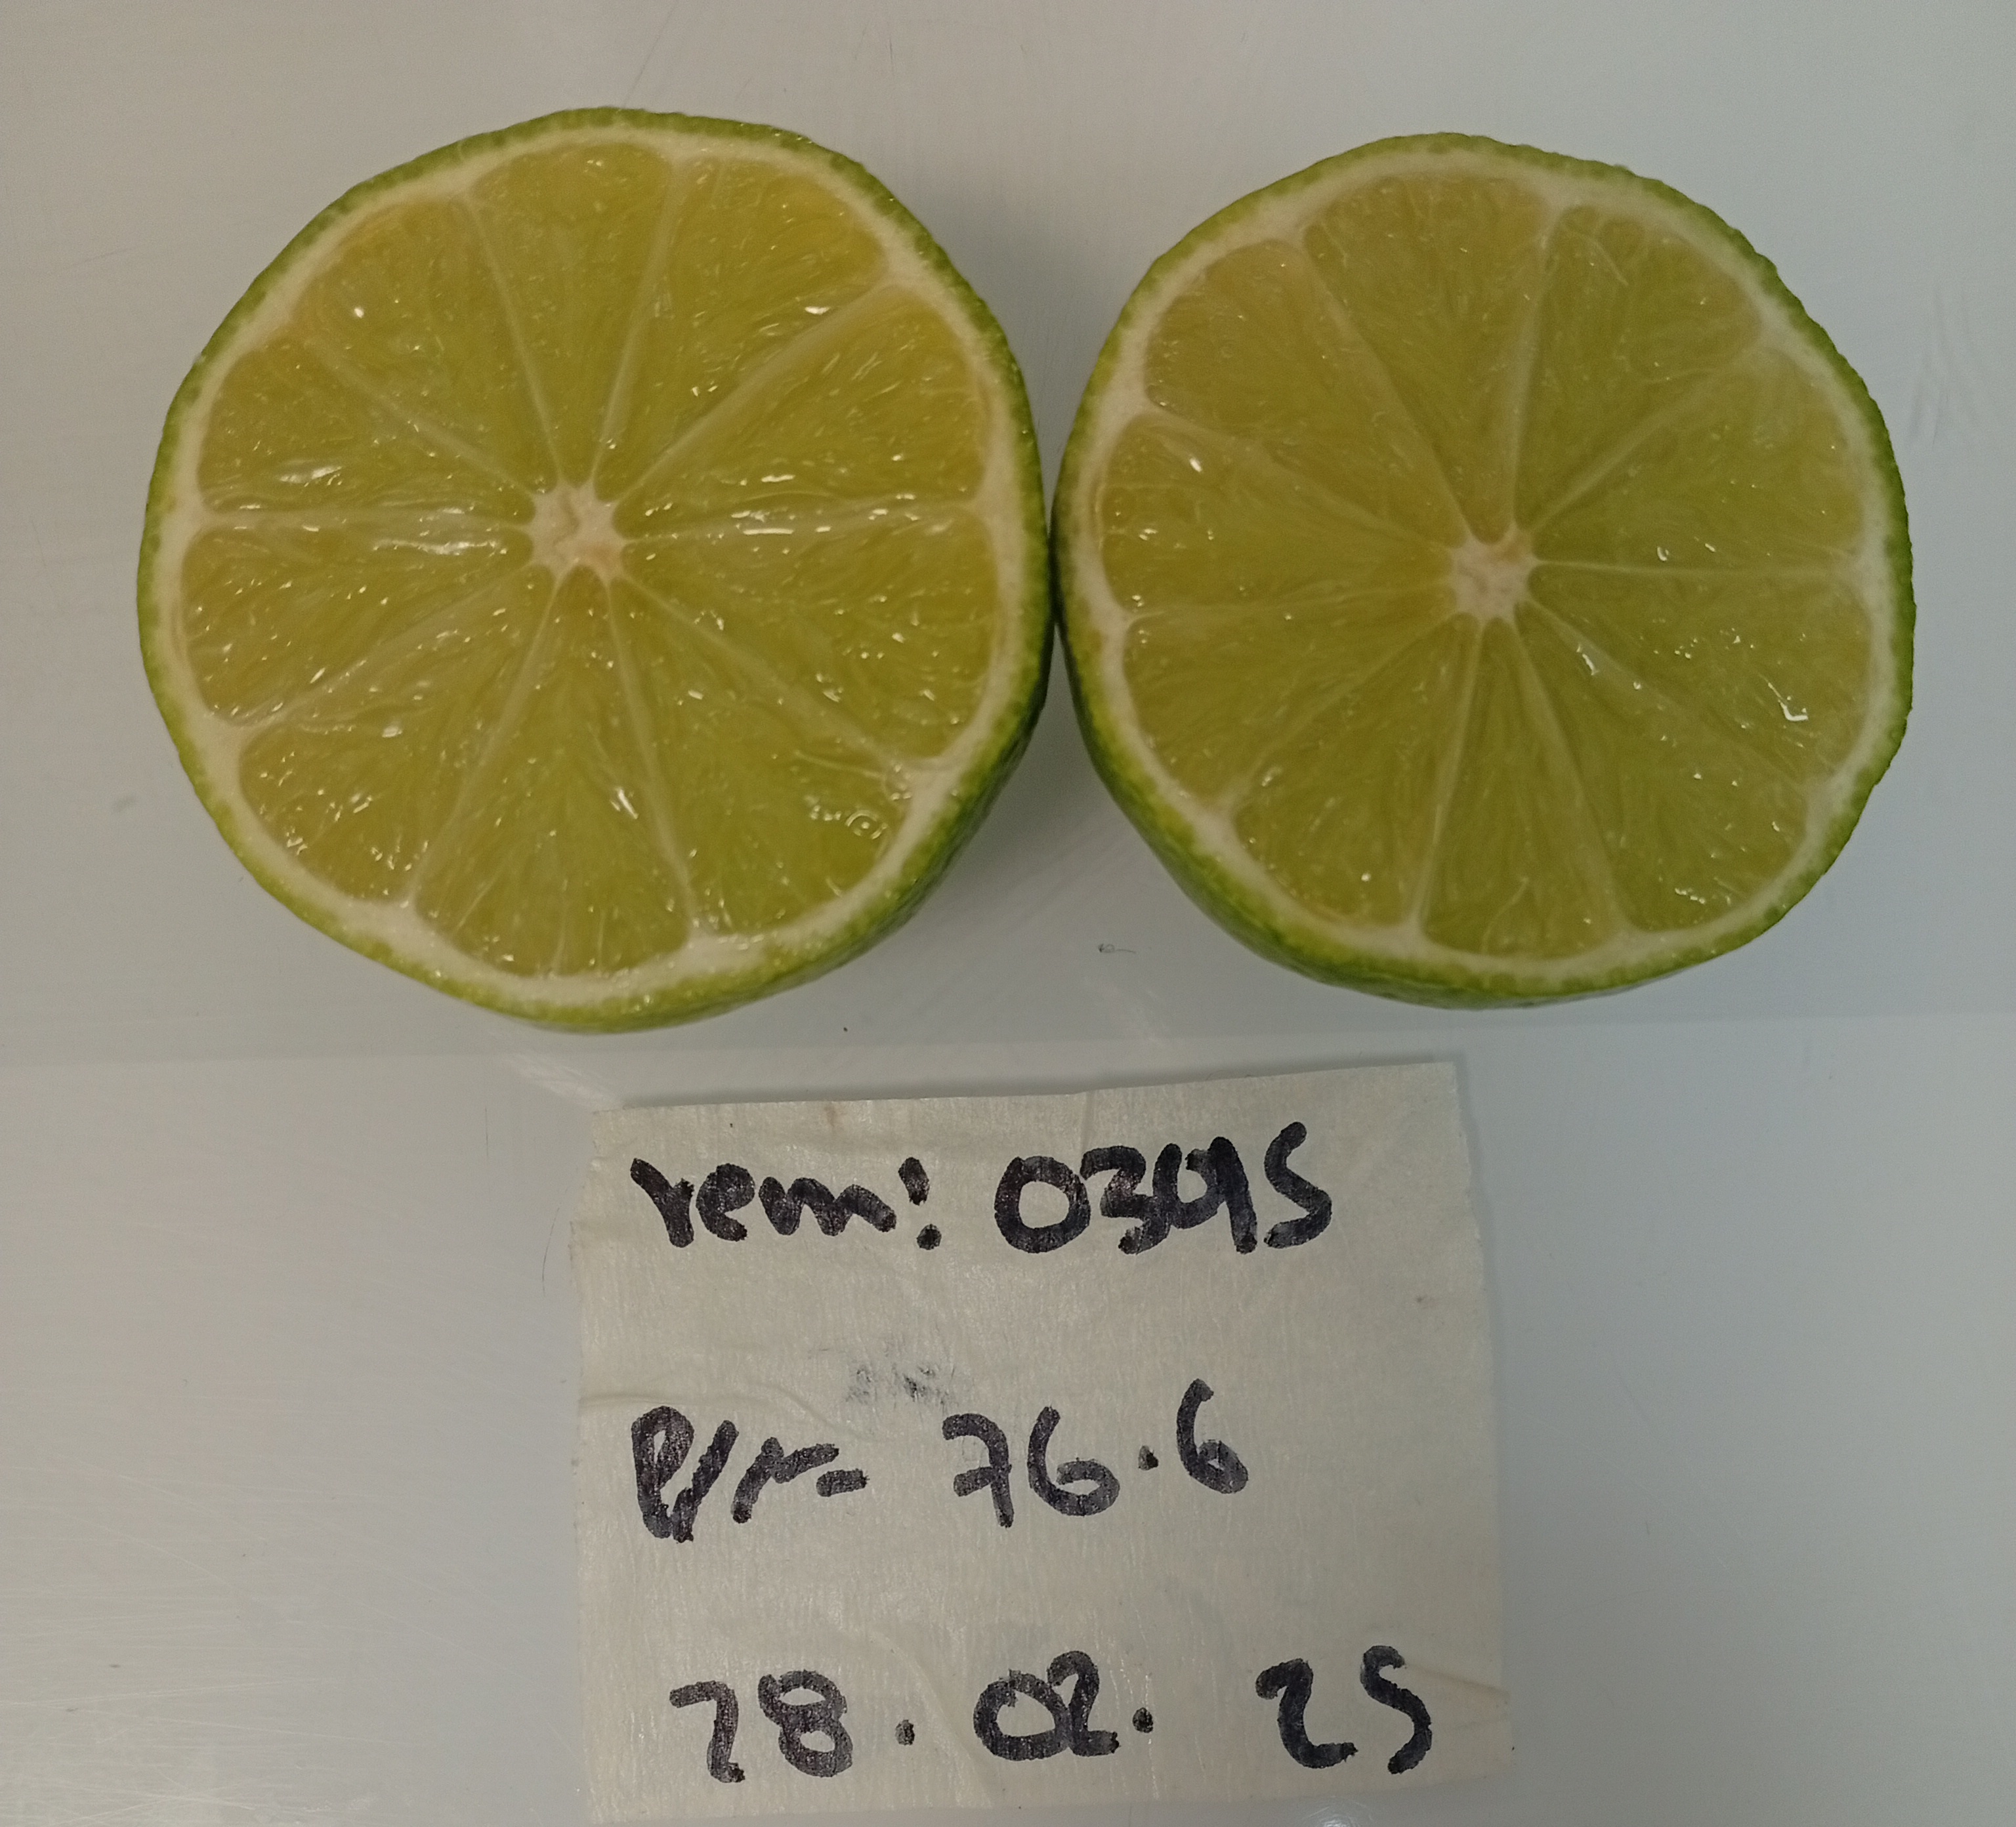 rem: 0395
P/r- 76.6
28.02. 25